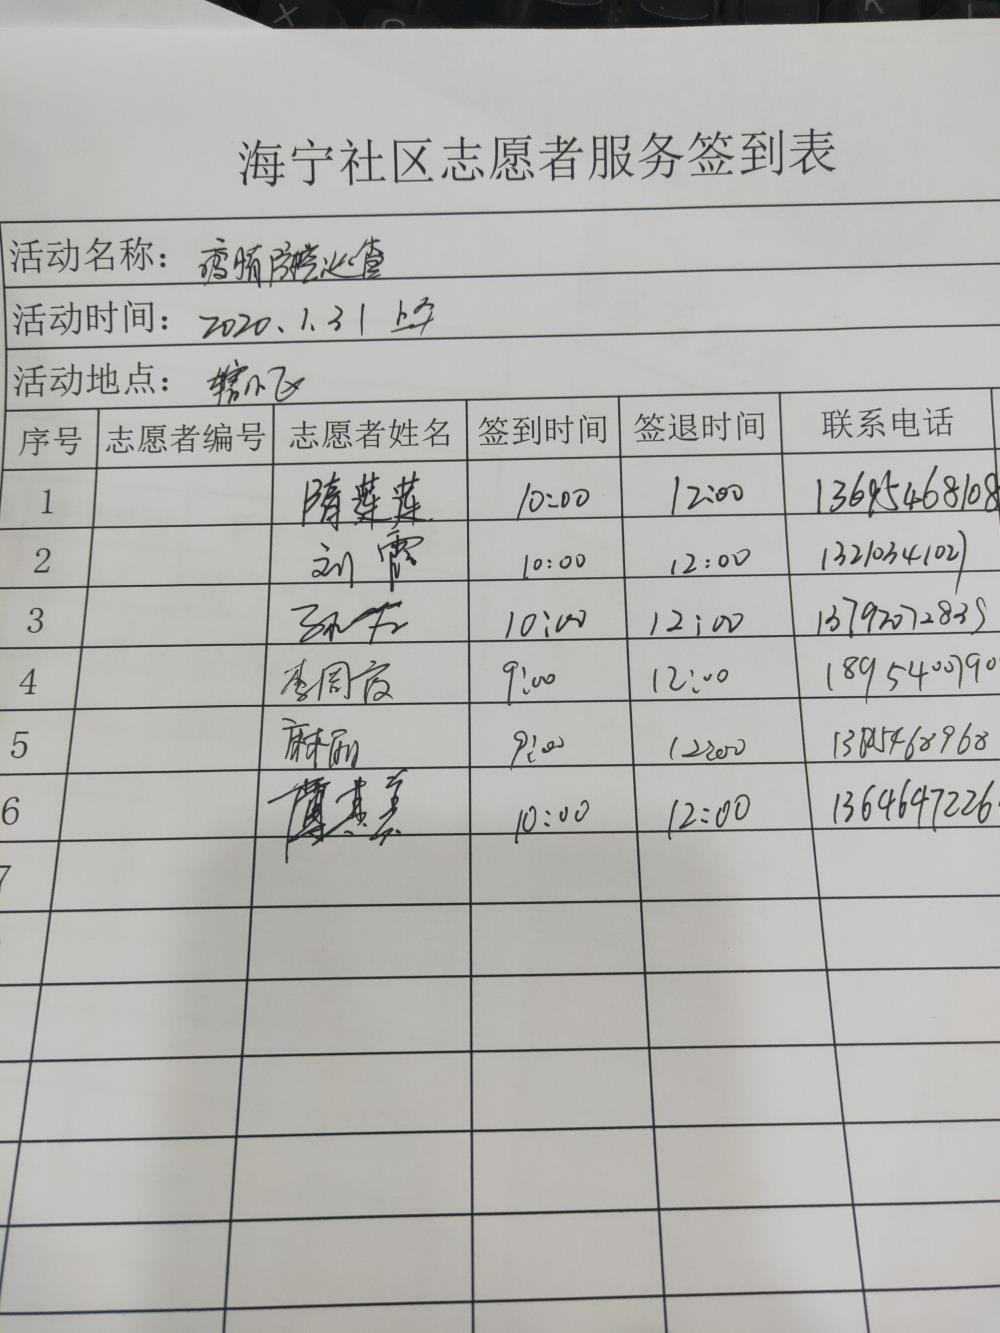 海宁社区志愿者服务签到表
活动名称：疫情防控巡查
活动时间：2020.1.31 上午
活动地点：辖小区
序号 志愿者编号 志愿者姓名 签到时间 签退时间 联系电话
1 隋莲莲 10:00 12:00 13695468108
2 刘霞 10:00 12:00 13210341027
3 10:00 12:00 13792072839
4 李同霞 9:00 12:00 1895400790
5 麻丽 9:00 12:00
6 10:00 12:00 1364647226
7